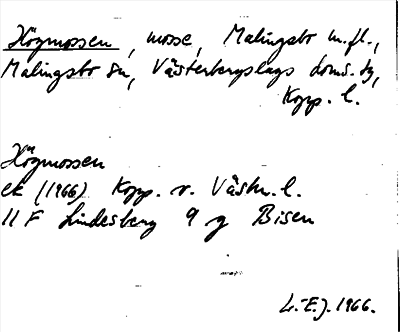 Högmossen, mosse, Malingsbo m.fl.,
Malingsbo sn, Västerbergslags doms. tg,
Kopp. l.
Högmossen
ek (1966) Kopp. o. Västm. l.
11 F Lindesberg 9 g Bisen
L.-E.J. 1966.